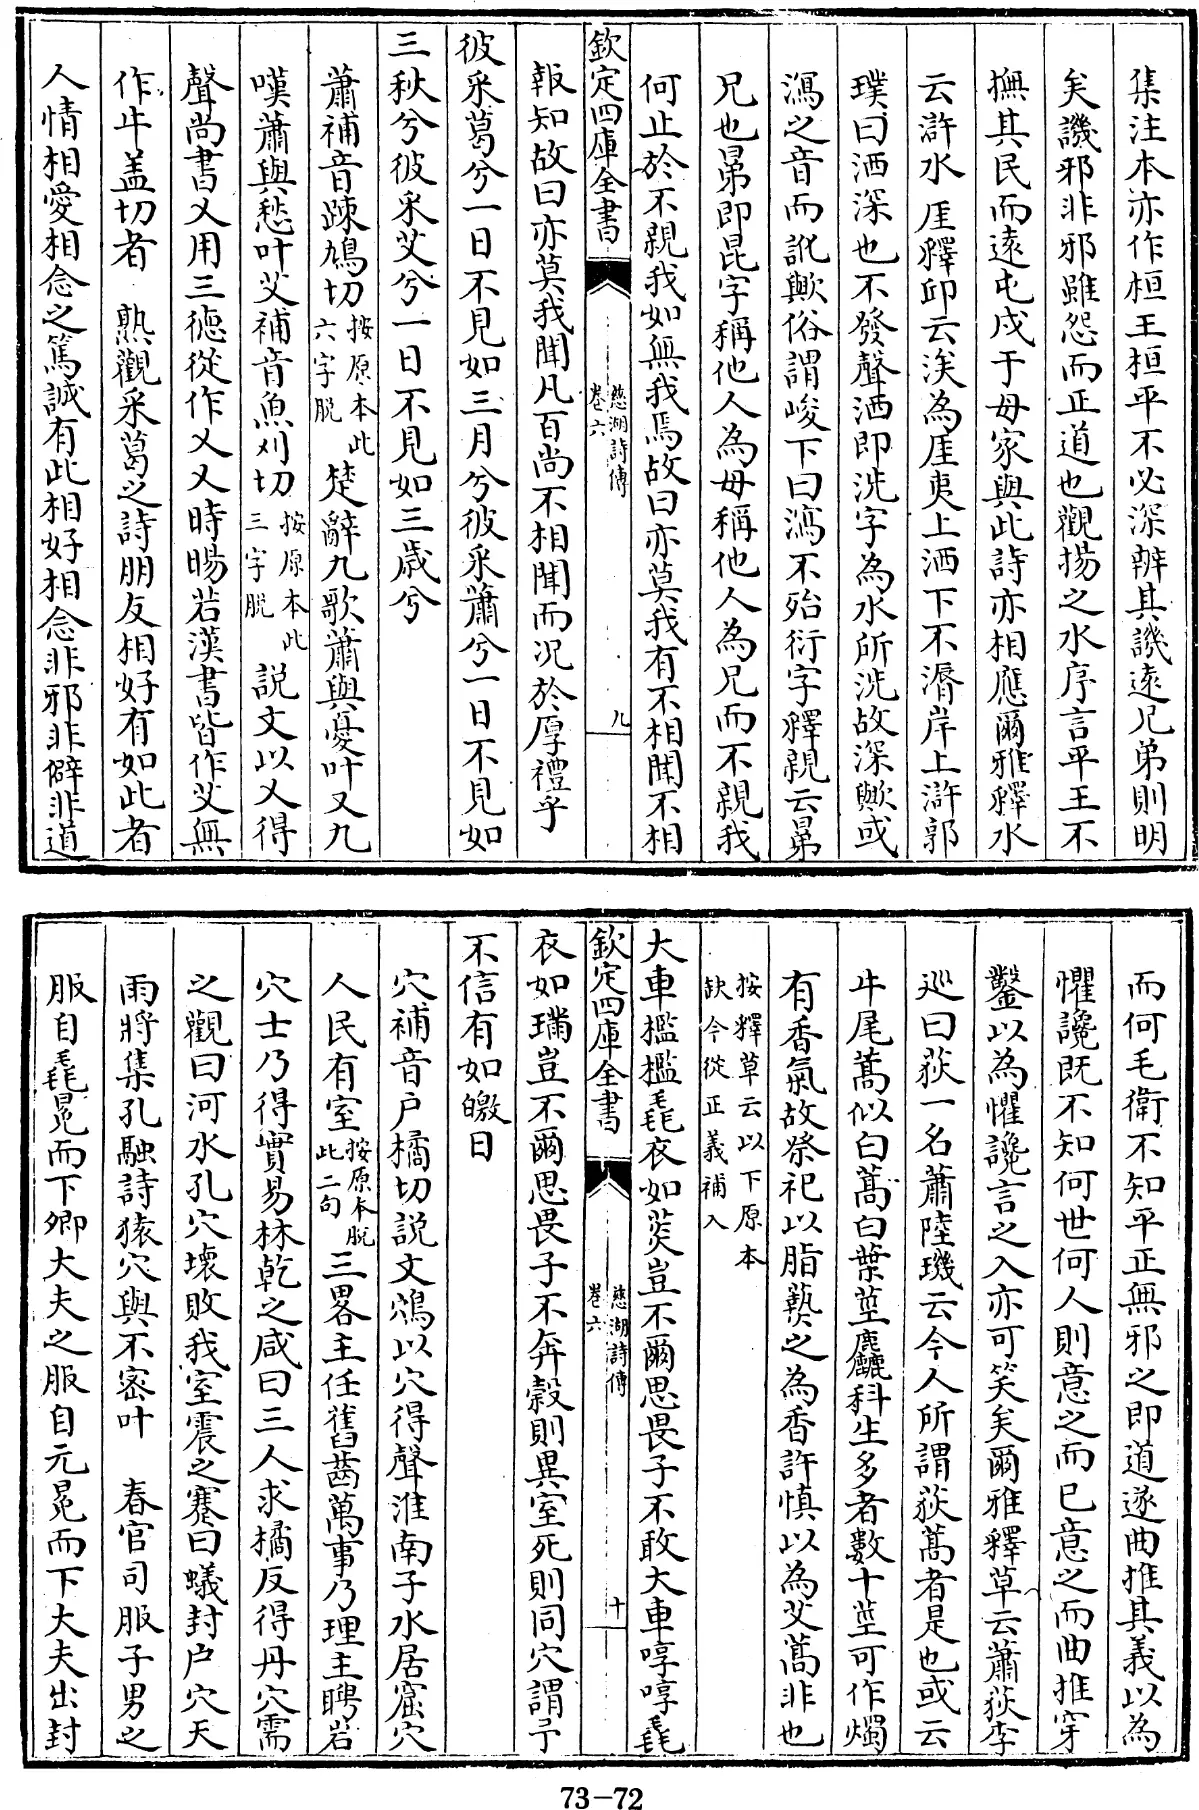 集注本亦作桓王桓平不必深辨其譏遠兄弟則明
矣譏邪非邪雖怨而正道也觀揚之水序言平王不
撫其民而遠屯戍于母家與此詩亦相應爾雅釋水
云滸水厓釋邱云涘為厓夷上洒下不漘岸上滸郭
璞曰洒深也不發聲洒即洗字為水所洗故深歟或
漘之音而訛歟俗謂峻下曰漘不殆衍字釋親云晜
兄也晜即昆字稱他人為母稱他人為兄而不親我
何止於不親我如無我焉故曰亦莫我有不相聞不相
欽定四庫全書
慈湖詩傳
卷六
九
報知故曰亦莫我聞凡百尚不相聞而况於厚禮乎
彼采葛兮一日不見如三月兮彼采蕭兮一日不見如
三秋兮彼采艾兮一日不見如三歲兮
蕭補音疎鳩切按原本此六字脱楚辭九歌蕭與憂叶又九
嘆蕭與愁叶艾補音魚刈切按原本此三字脱説文以乂得
聲尚書乂用三徳從作乂乂時暘若漢書皆作艾無
作牛盖切者 熟觀采葛之詩朋友相好有如此者
人情相愛相念之篤誠有此相好相念非邪非僻非道
而何毛衛不知平正無邪之即道遂曲推其義以為
懼讒既不知何世何人則意之而已意之而曲推穿
鑿以為懼讒言之入亦可笑矣爾雅釋草云蕭荻李
巡曰荻一名蕭陸璣云今人所謂荻蒿者是也或云
牛尾蒿似白蒿白葉莖麤科生多者數十莖可作燭
有香氣故祭祀以脂爇之為香許慎以為艾蒿非也
按釋草云以下原本
缺今從正義補入
大車檻檻毳衣如菼豈不爾思畏子不敢大車啍啍毳
欽定四庫全書
慈湖詩傳
卷六
十
衣如璊豈不爾思畏子不奔穀則異室死則同穴謂予
不信有如皦日
穴補音户橘切説文鴥以穴得聲淮南子水居窟穴
人民有室按原本脱此二句三畧主任舊齒萬事乃理主聘岩
穴士乃得實易林乾之咸曰三人求橘反得丹穴需
之觀曰河水孔穴壞敗我室震之蹇曰蟻封户穴天
雨將集孔融詩猿穴與不密叶 春官司服子男之
服自毳冕而下卿大夫之服自元冕而下大夫出封
73-72